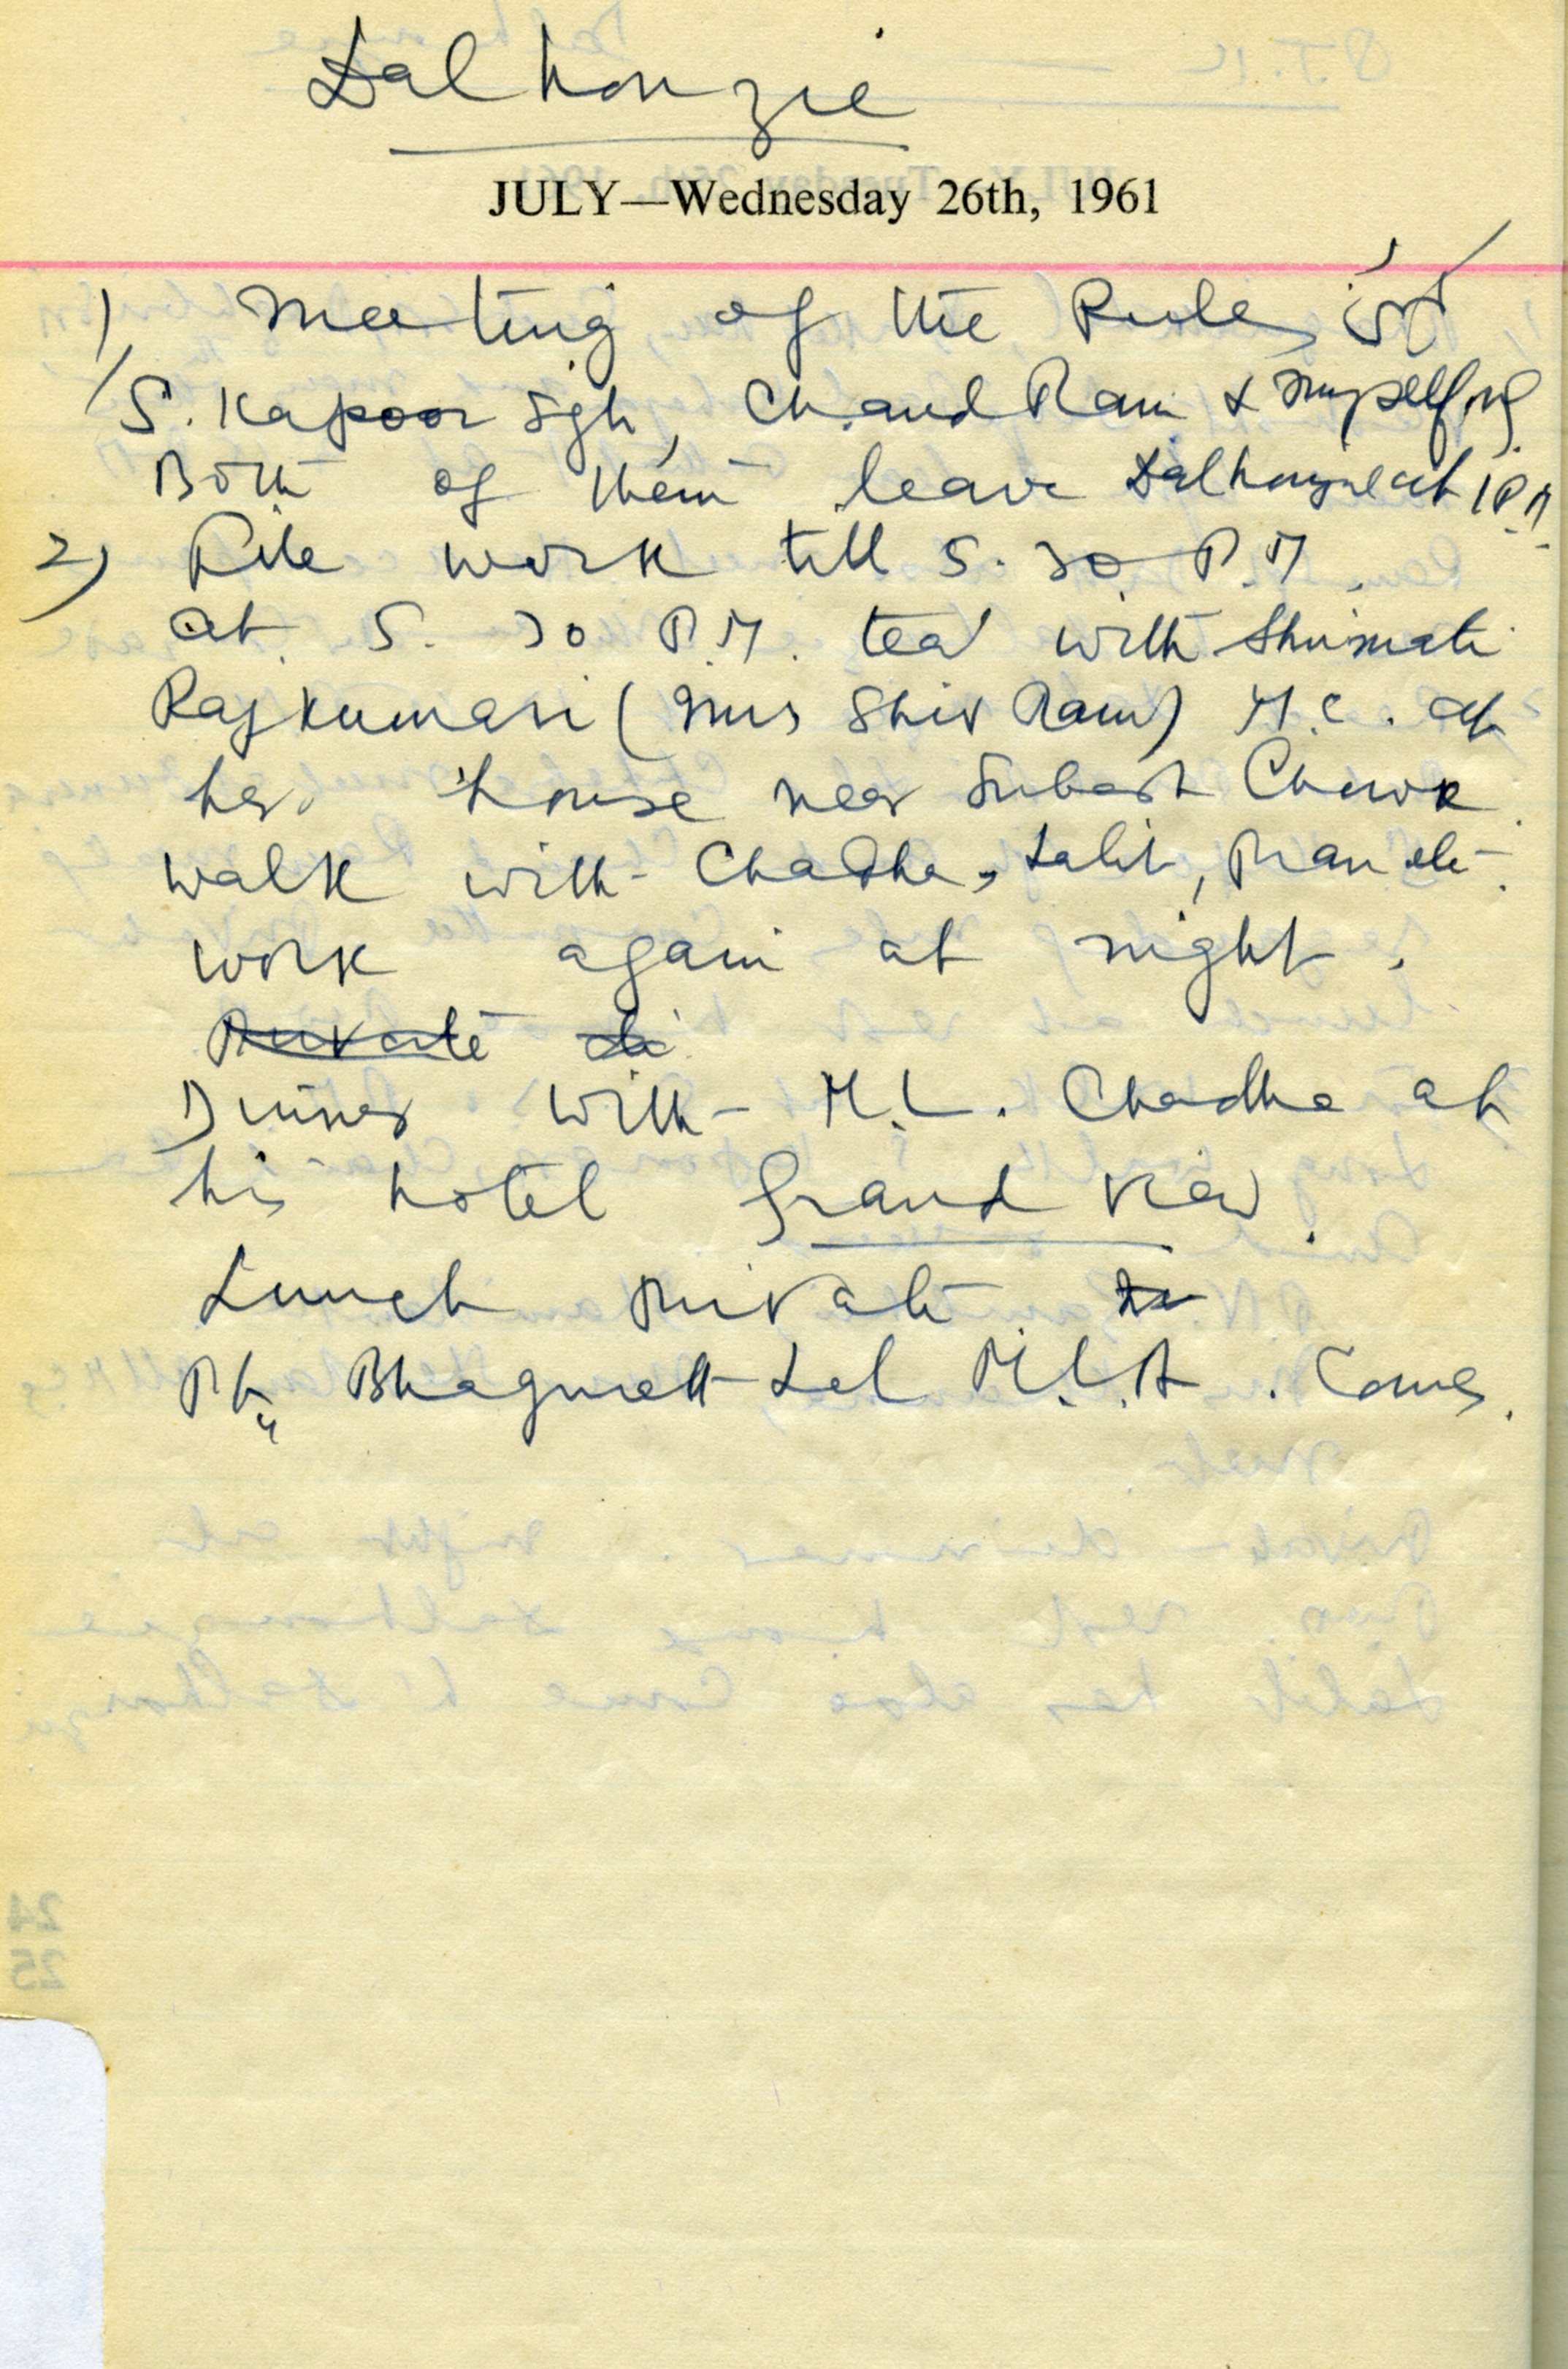 Dalhouzie
JULY—Wednesday 26th, 1961
1) Meeting of the Rules
S. Kapoor Sgh, Chand Ram & myself
Both of them leave Dalhouzie at 1 P.M.
2) File work till 5.30 P.M.
at 5.30 P.M. tea with Shrimati
Rajkumari (Mrs Shiv Ram) M.C. at
her house near Subash Chowk.
walk with Chadha, Lalit, Pran etc.
work again at night.
Private di
Dinner with M.L. Chadha at
his hotel Grand View.
Lunch private
Pt. Bhagwat Lal M.L.A. Comes.